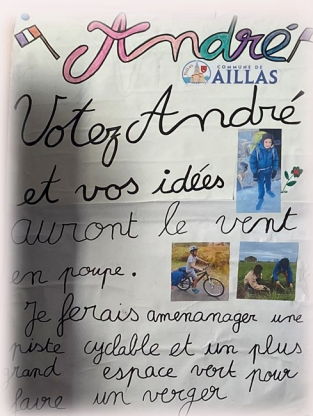 André
COMMUNE DE
AILLAS
Votez André
et vos idées
auront le vent
en poupe.
Je ferais amenanager une
piste cyclable et un plus
grand espace vert pour
faire un verger